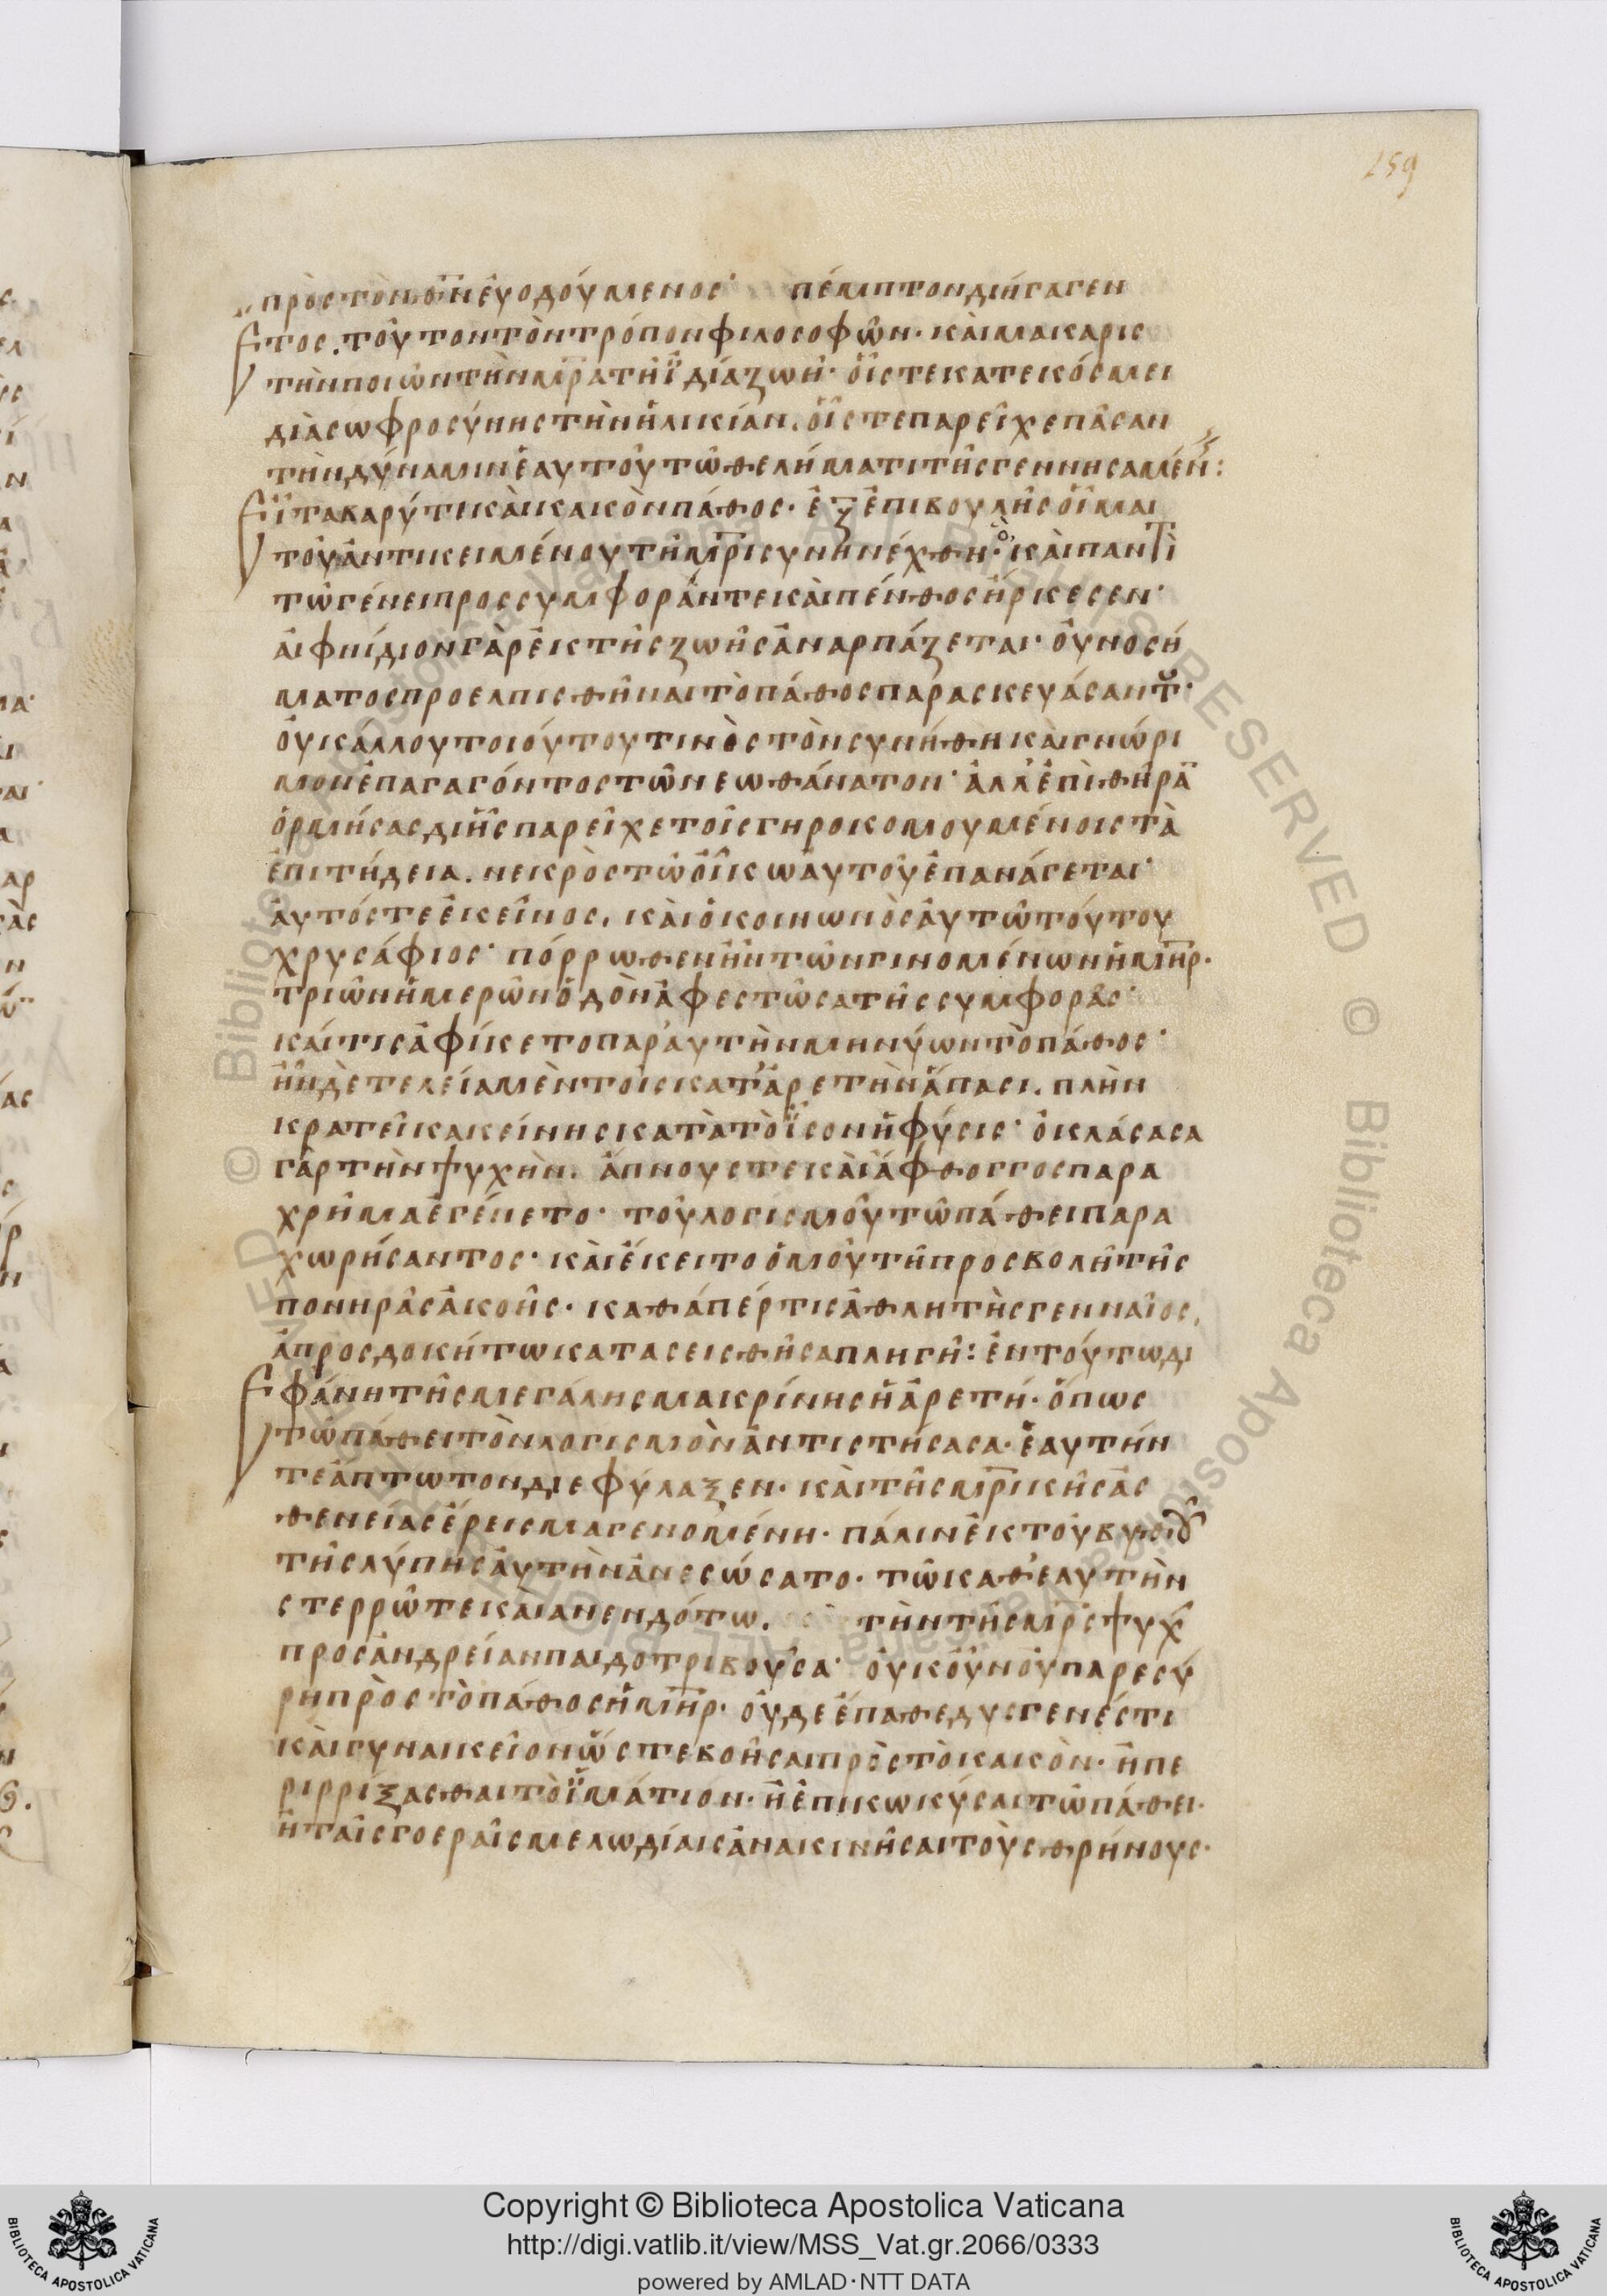 259
πρὸς τὸν θν̅ εὐοδούμενος· πέμπτον διήγαγεν
ἔτος. τοῦτον τὸν τρόπον φιλοσοφῶν· καὶ μακαρισ
τὴν ποιῶν τὴν μρ̅α τῇ ἰδία ζωῇ· οἷς τε κατεκόσμει
διὰ σωφροσύνης τὴν ἡλικίαν. οἷς τε παρεῖχε πᾶσαν
τὴν δύναμιν ἑαυτοῦ τῶ θελήματι τῆς γεννησαμένης:
Εἶτα βαρύ τι καὶ κακὸν πάθος· ἐξ ἐπιβουλῆς οἶμαι
τοῦ ἀντικειμένου τῇ μρ̅ι συνηνέχθη· ὃ καὶ παντὶ
τῶ γένει προς συμφοράν τε καὶ πένθος ἤρκεσεν·
αἰφνίδιον γὰρ ἐκ τῆς ζωῆς ἀναρπάζεται· οὐ νοσή
ματος προελπισθῆναι τὸ πάθος παρασκευάσαντος·
οὐκ ἄλλου τοιούτου τινὸς τὸν συνήθη καὶ γνώρι
μον ἐπαγαγόντος τῶ νέω θάνατον· ἀλλ' ἐπὶ θήραν
ὁρμήσας δι ἧς παρεῖχε τοῖς γηροκομουμένοις τὰ
ἐπιτήδεια. νεκρὸς τῶ οἴκω αὐτοῦ ἐπανάγεται·
αὐτός τε ἐκεῖνος, καὶ ὁ κοινωνὸς αὐτῶ τούτου
χρυσάφιος· πόρρωθεν ἦν τῶν γινομένων ἡ μη̅ρ·
τριῶν ἡμερῶν ὁδὸν ἀφεστῶσα τῆς συμφορᾶς·
καί τις ἀφίκετο παρ' αὐτὴν μηνύων τὸ πάθος·
ἦν δὲ τελεία μὲν τοῖς κατ' ἀρετὴν ἅπασι. πλὴν
κρατεῖ κακείνης κατὰ τὸ ἶσον ἡ φύσις· ὀκλάσασα
γὰρ τὴν ψυχὴν. ἄπνους τὲ καὶ ἄφθογγος παρα
χρῆμα ἐγένετο· τοῦ λογισμοῦ τῶ πάθει παρα
χωρήσαντος· καὶ ἔκειτο ὁμοῦ τῇ προσβολῇ τῆς
πονηρᾶς ἀκοῆς· καθάπέρ τις ἀθλητὴς γενναῖος,
ἀπροσδοκήτω κατασεισθῆσα πληγῇ: ἐν τούτω δι
εφάνη τῆς μεγάλης μακρίνης ἡ ἀρετή· ὅπως
τῶ πάθει τὸν λογισμὸν ἀντιστήσασα· ἑαυτήν
τε ἄπτωτον διεφύλαξεν· καὶ τῆς μρ̅ικῆς ἀς
θενείας ἔρεισμα γενομένη· πάλιν ἐκ τοῦ βυθοῦ
τῆς λύπης αὐτὴν ἀνεσώσατο· τῶ καθ' ἑαυτὴν
στερρῶ τε καὶ ἀνενδότω. τὴν τῆς μρ̅ς ψυχὴν
προς ἀνδρείαν παιδοτριβοῦσα· οὐκοῦν οὐ παρεσύ
ρη πρὸς τὸ πάθος ἡ μη̅ρ· οὐδε ἔπαθε δυσγενές τι
καὶ γυναικεῖον ὥς τε βοῆσαι πρὸς τὸ κακὸν· ἢ πε
ριρρίξασθαι τὸ ἱμάτιον· ἢ ἐπικωκύσαι τῶ πάθει·
ἢ ταῖς γοεραῖς μελωδίαις ἀνακινῆσαι τοὺς θρήνους·
Copyright © Biblioteca Apostolica Vaticana
http://digi.vatlib.it/view/MSS_Vat.gr.2066/0333
powered by AMLAD·NTT DATA